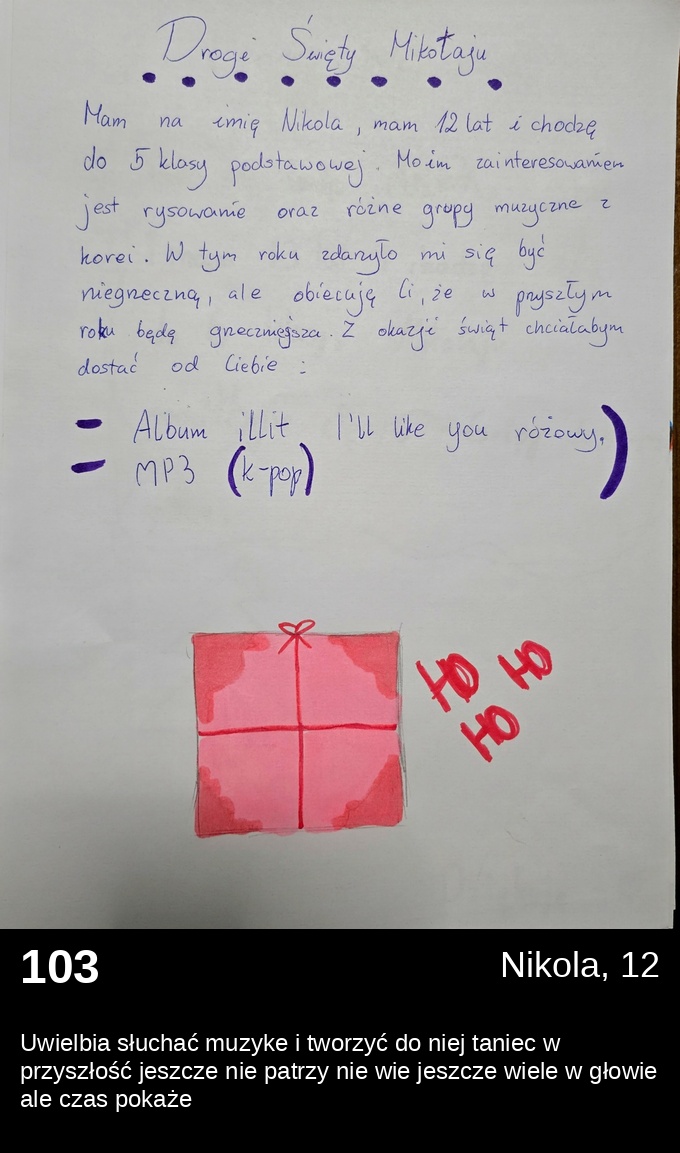 Drogi Święty Mikołaju
Mam na imię Nikola, mam 12 lat i chodzę
do 5 klasy podstawowej. Moim zainteresowaniem
jest rysowanie oraz różne grupy muzyczne z
korei. W tym roku zdarzyło mi się być
niegrzeczną, ale obiecuję Ci, że w przyszłym
roku będę grzeczniejsza. Z okazji świąt chciałabym
dostać od Ciebie :
- Album illit I'll like you różowy.)
- MP3 (k-pop)
HO HO
HO
103
Nikola, 12
Uwielbia słuchać muzyke i tworzyć do niej taniec w
przyszłość jeszcze nie patrzy nie wie jeszcze wiele w głowie
ale czas pokaże